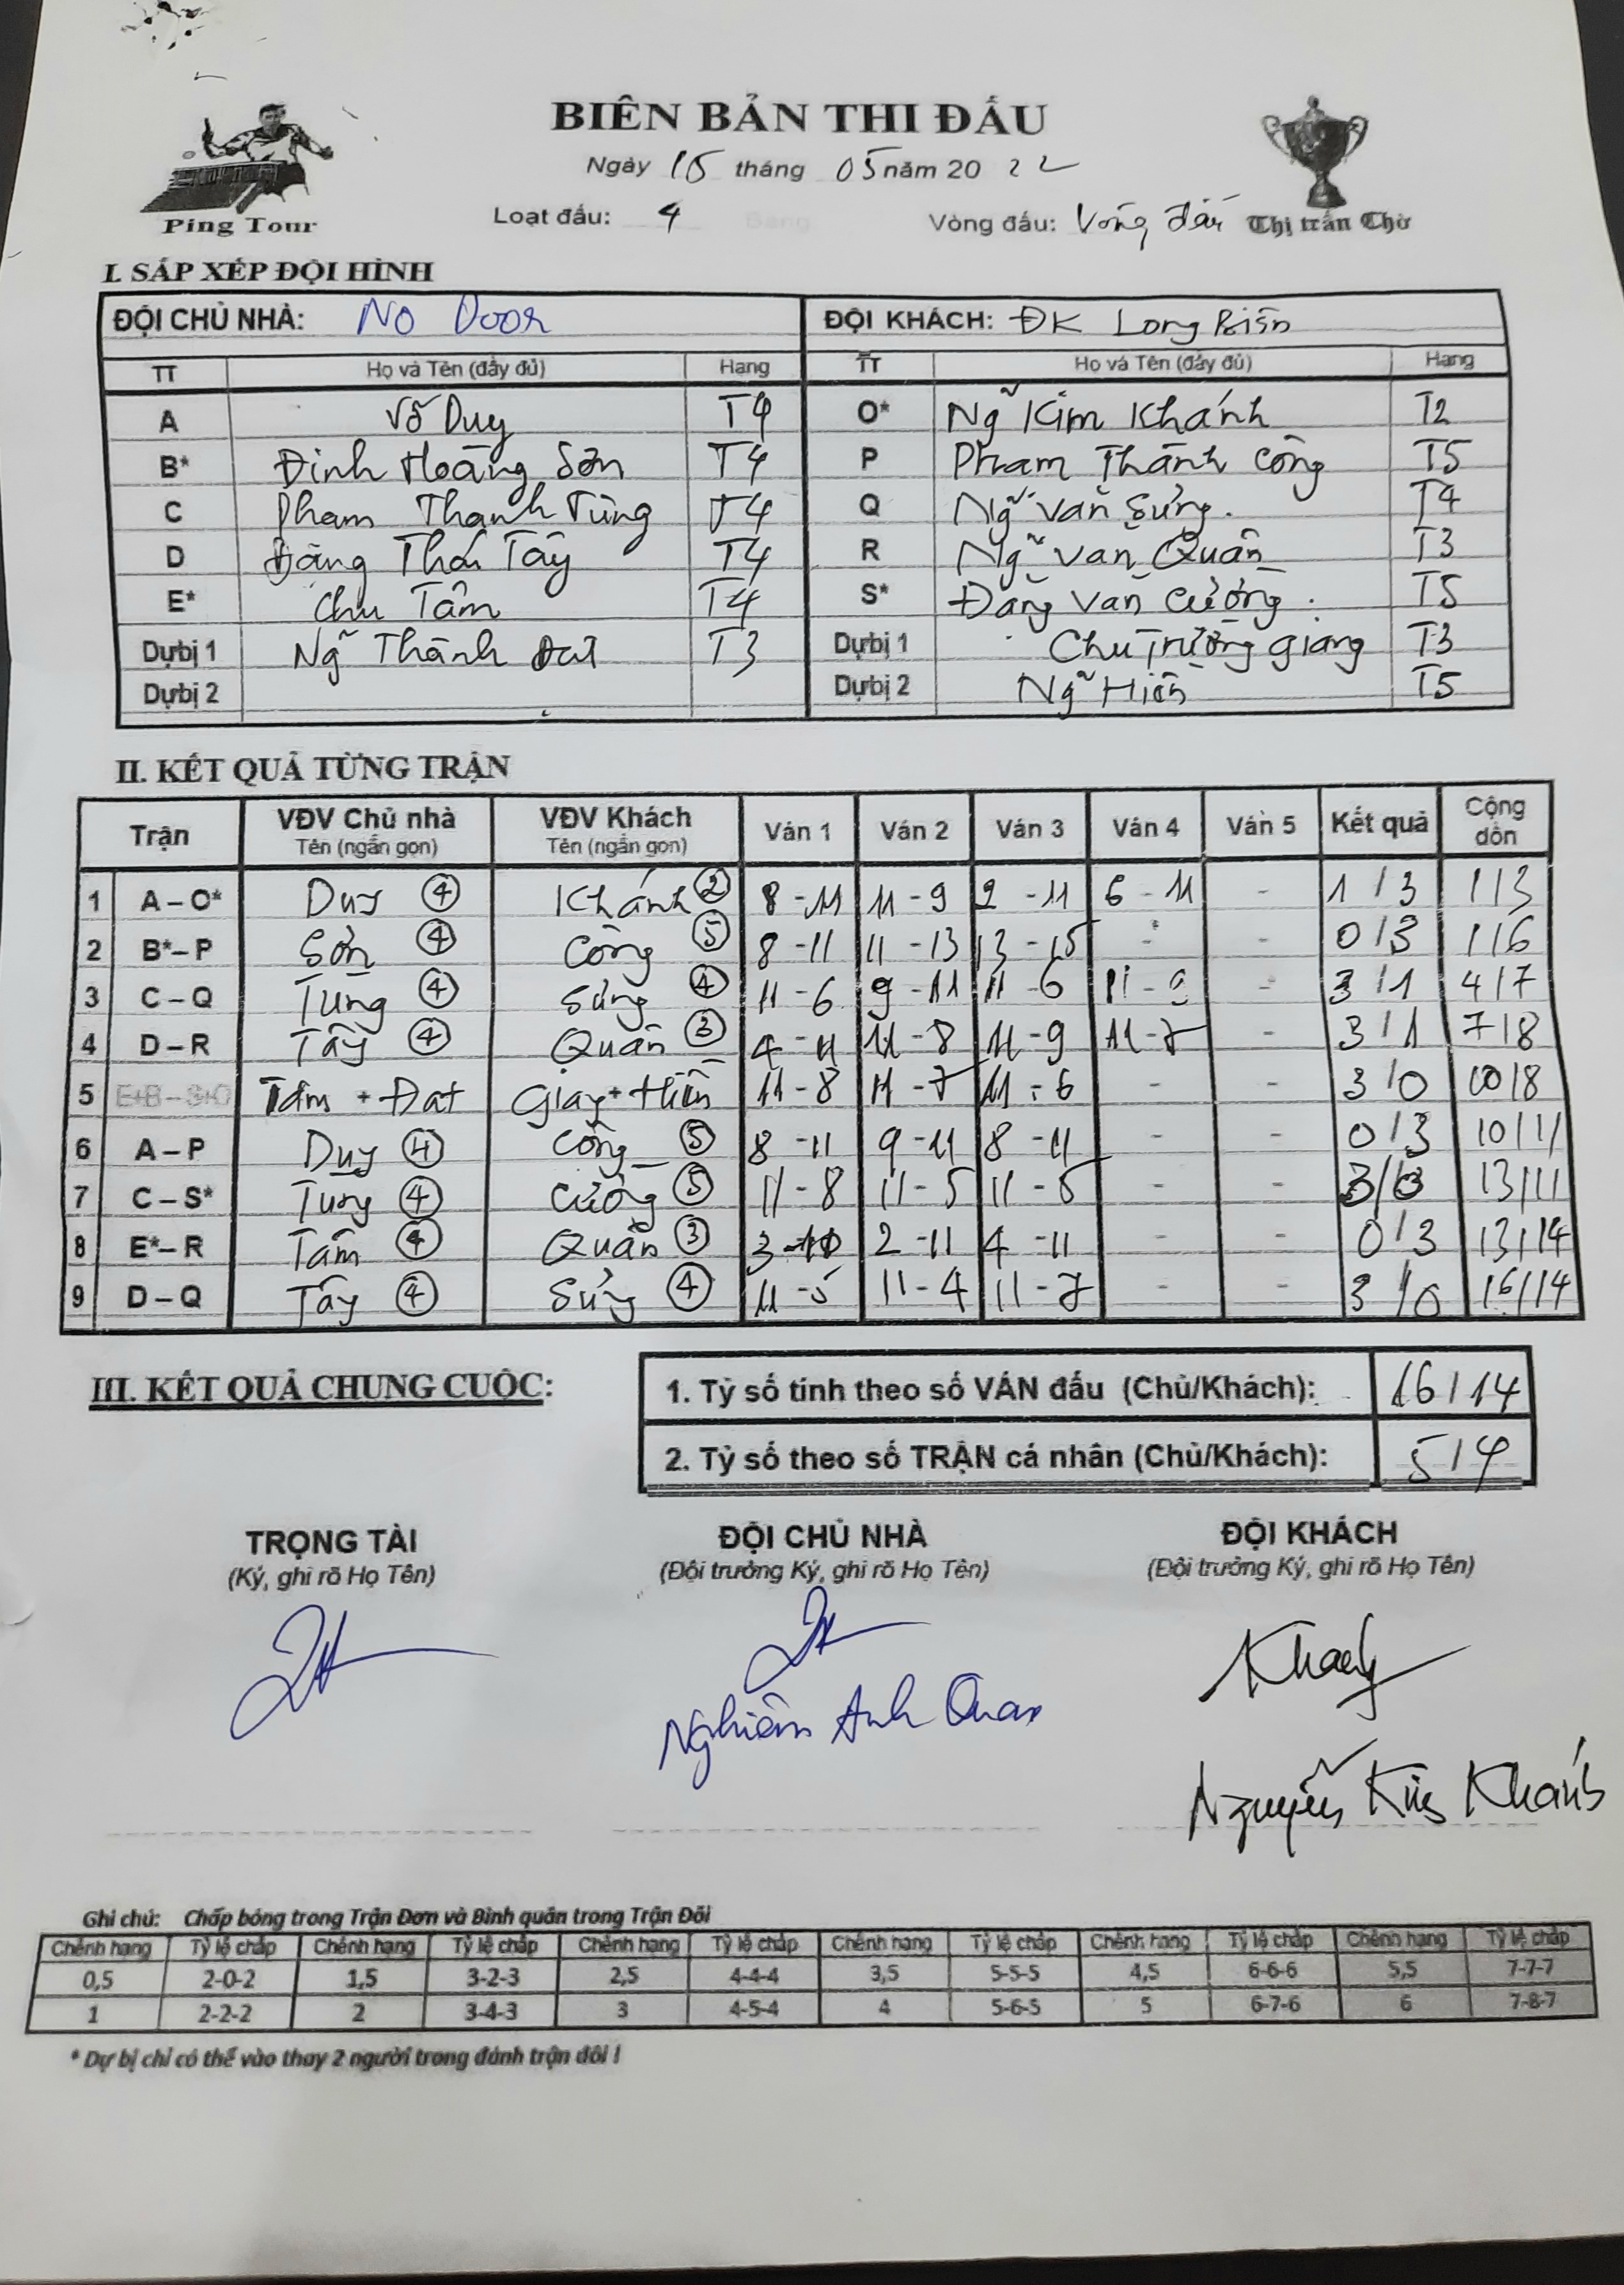 BIÊN BẢN THI ĐẤU
Ngày 15 tháng 05 năm 20 22
Ping Tour
Loạt đấu: 4 Bảng
Vòng đấu: Vòng đấu
Thị trấn Chờ
I. SẮP XẾP ĐỘI HÌNH
ĐỘI CHỦ NHÀ: No Door ĐỘI KHÁCH: ĐK Long Biên
TT Họ và Tên (đầy đủ) Hạng TT Họ và Tên (đầy đủ) Hạng
A Võ Duy T4 O* Ng~ Kim Khánh T2
B* Đinh Hoàng Sơn T4 P Phạm Thành Công T5
C Phạm Thanh Tùng T4 Q Ng~ Văn Sửng. T4
D Đặng Thái Tây T4 R Ng~ Văn Quân T3
E* Chu Tâm T4 S* Đặng Văn Cường. T5
Dự bị 1 Ng~ Thành Đạt T3 Dự bị 1 Chu Trường Giang T3
Dự bị 2 Dự bị 2 Ng~ Hiền T5
II. KẾT QUẢ TỪNG TRẬN
Trận VĐV Chủ nhà Tên (ngắn gọn) VĐV Khách Tên (ngắn gọn) Ván 1 Ván 2 Ván 3 Ván 4 Ván 5 Kết quả Cộng dồn
1 A – O* Duy 4 Khánh 2 8 - 11 11 - 9 2 - 11 6 - 11 - 1 / 3 1 / 3
2 B* – P Sơn 4 Công 5 8 - 11 11 - 13 13 - 15 - - 0 / 3 1 / 6
3 C – Q Tùng 4 Sửng 4 11 - 6 9 - 11 11 - 6 11 - 9 - 3 / 1 4 / 7
4 D – R Tây 4 Quân 3 4 - 11 11 - 8 11 - 9 11 - 7 - 3 / 1 7 / 8
5 E+B – S+O Tâm + Đạt Giang + Hiền 11 - 8 11 - 7 11 - 6 - - 3 / 0 10 / 8
6 A – P Duy 4 Công 5 8 - 11 9 - 11 8 - 11 - - 0 / 3 10 / 11
7 C – S* Tùng 4 Cường 5 11 - 8 11 - 5 11 - 5 - - 3 / 0 13 / 11
8 E* – R Tâm 4 Quân 3 3 - 2 - 11 4 - 11 - - 0 / 3 13 / 14
9 D – Q Tây 4 Sửng 4 11 - 5 11 - 4 11 - 7 - - 3 / 0 16 / 14
III. KẾT QUẢ CHUNG CUỘC:
1. Tỷ số tính theo số VÁN đấu (Chủ/Khách): 16 / 14
2. Tỷ số theo số TRẬN cá nhân (Chủ/Khách): 5 / 4
TRỌNG TÀI ĐỘI CHỦ NHÀ ĐỘI KHÁCH
(Ký, ghi rõ Họ Tên) (Đội trưởng Ký, ghi rõ Họ Tên) (Đội trưởng Ký, ghi rõ Họ Tên)
Nghiêm Anh
Nguyễn Kim Khánh
Ghi chú: Chấp bóng trong Trận Đơn và Bình quân trong Trận Đôi
Chênh hạng Tỷ lệ chấp Chênh hạng Tỷ lệ chấp Chênh hạng Tỷ lệ chấp Chênh hạng Tỷ lệ chấp Chênh hạng Tỷ lệ chấp Chênh hạng Tỷ lệ chấp
0,5 2-0-2 1,5 3-2-3 2,5 4-4-4 3,5 5-5-5 4,5 6-6-6 5,5 7-7-7
1 2-2-2 2 3-4-3 3 4-5-4 4 5-6-5 5 6-7-6 6 7-8-7
* Dự bị chỉ có thể vào thay 2 người trong đánh trận đôi !